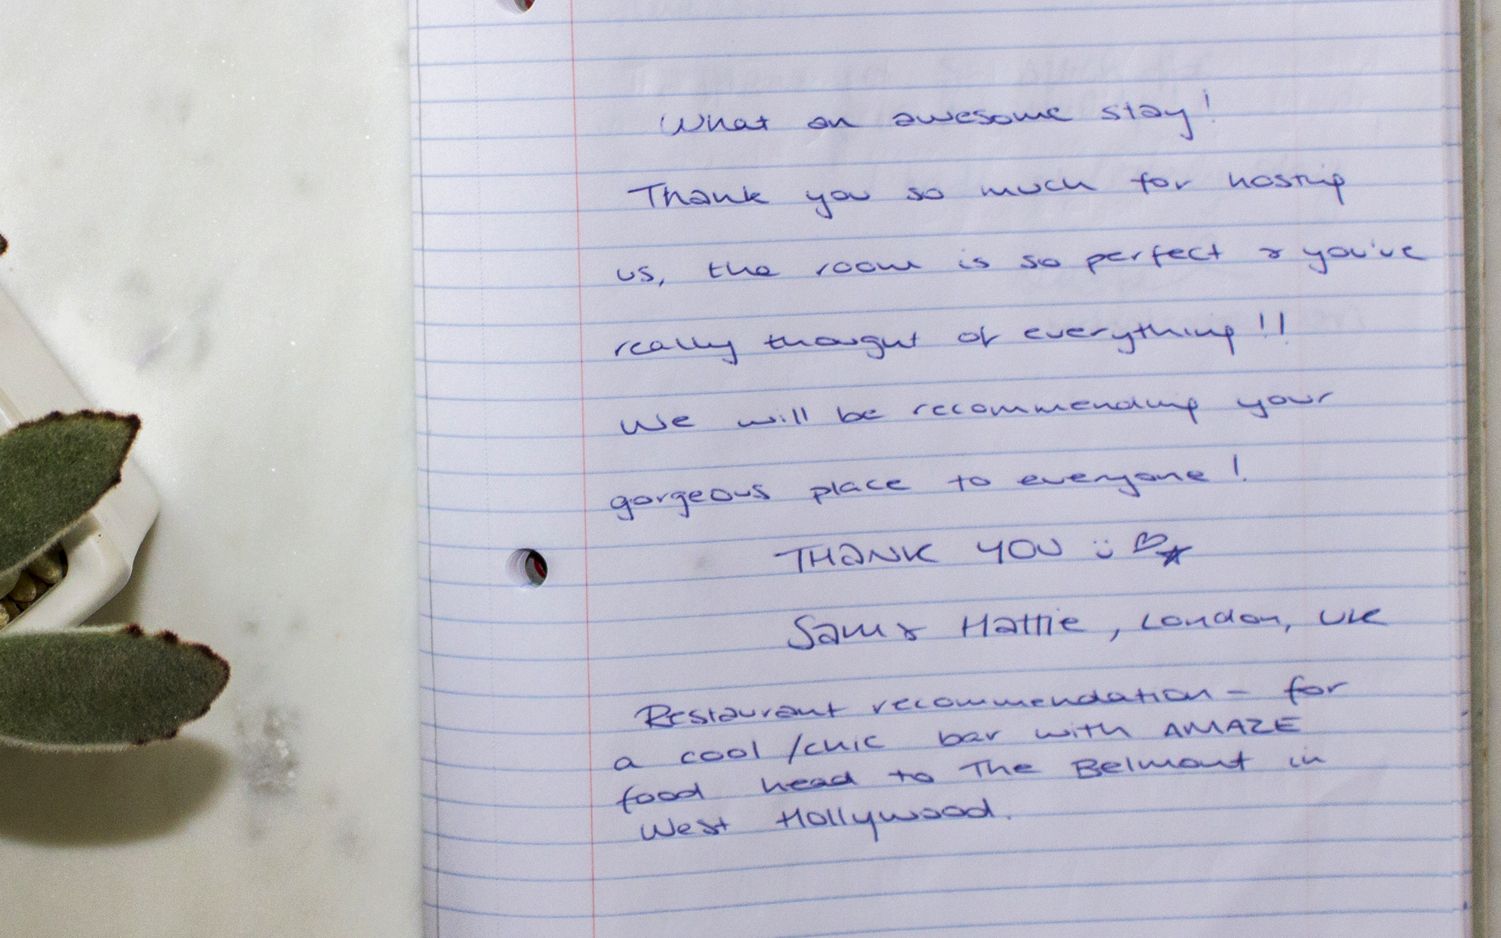 What an awesome stay!
Thank you so much for hosting
us, the room is so perfect & you've
really thought of everything!!
We will be recommending your
gorgeous place to everyone!
THANK YOU :) ♡★
Sam & Hattie, London, UK
Restaurant recommendation - for
a cool/chic bar with AMAZE
food head to The Belmont in
West Hollywood.